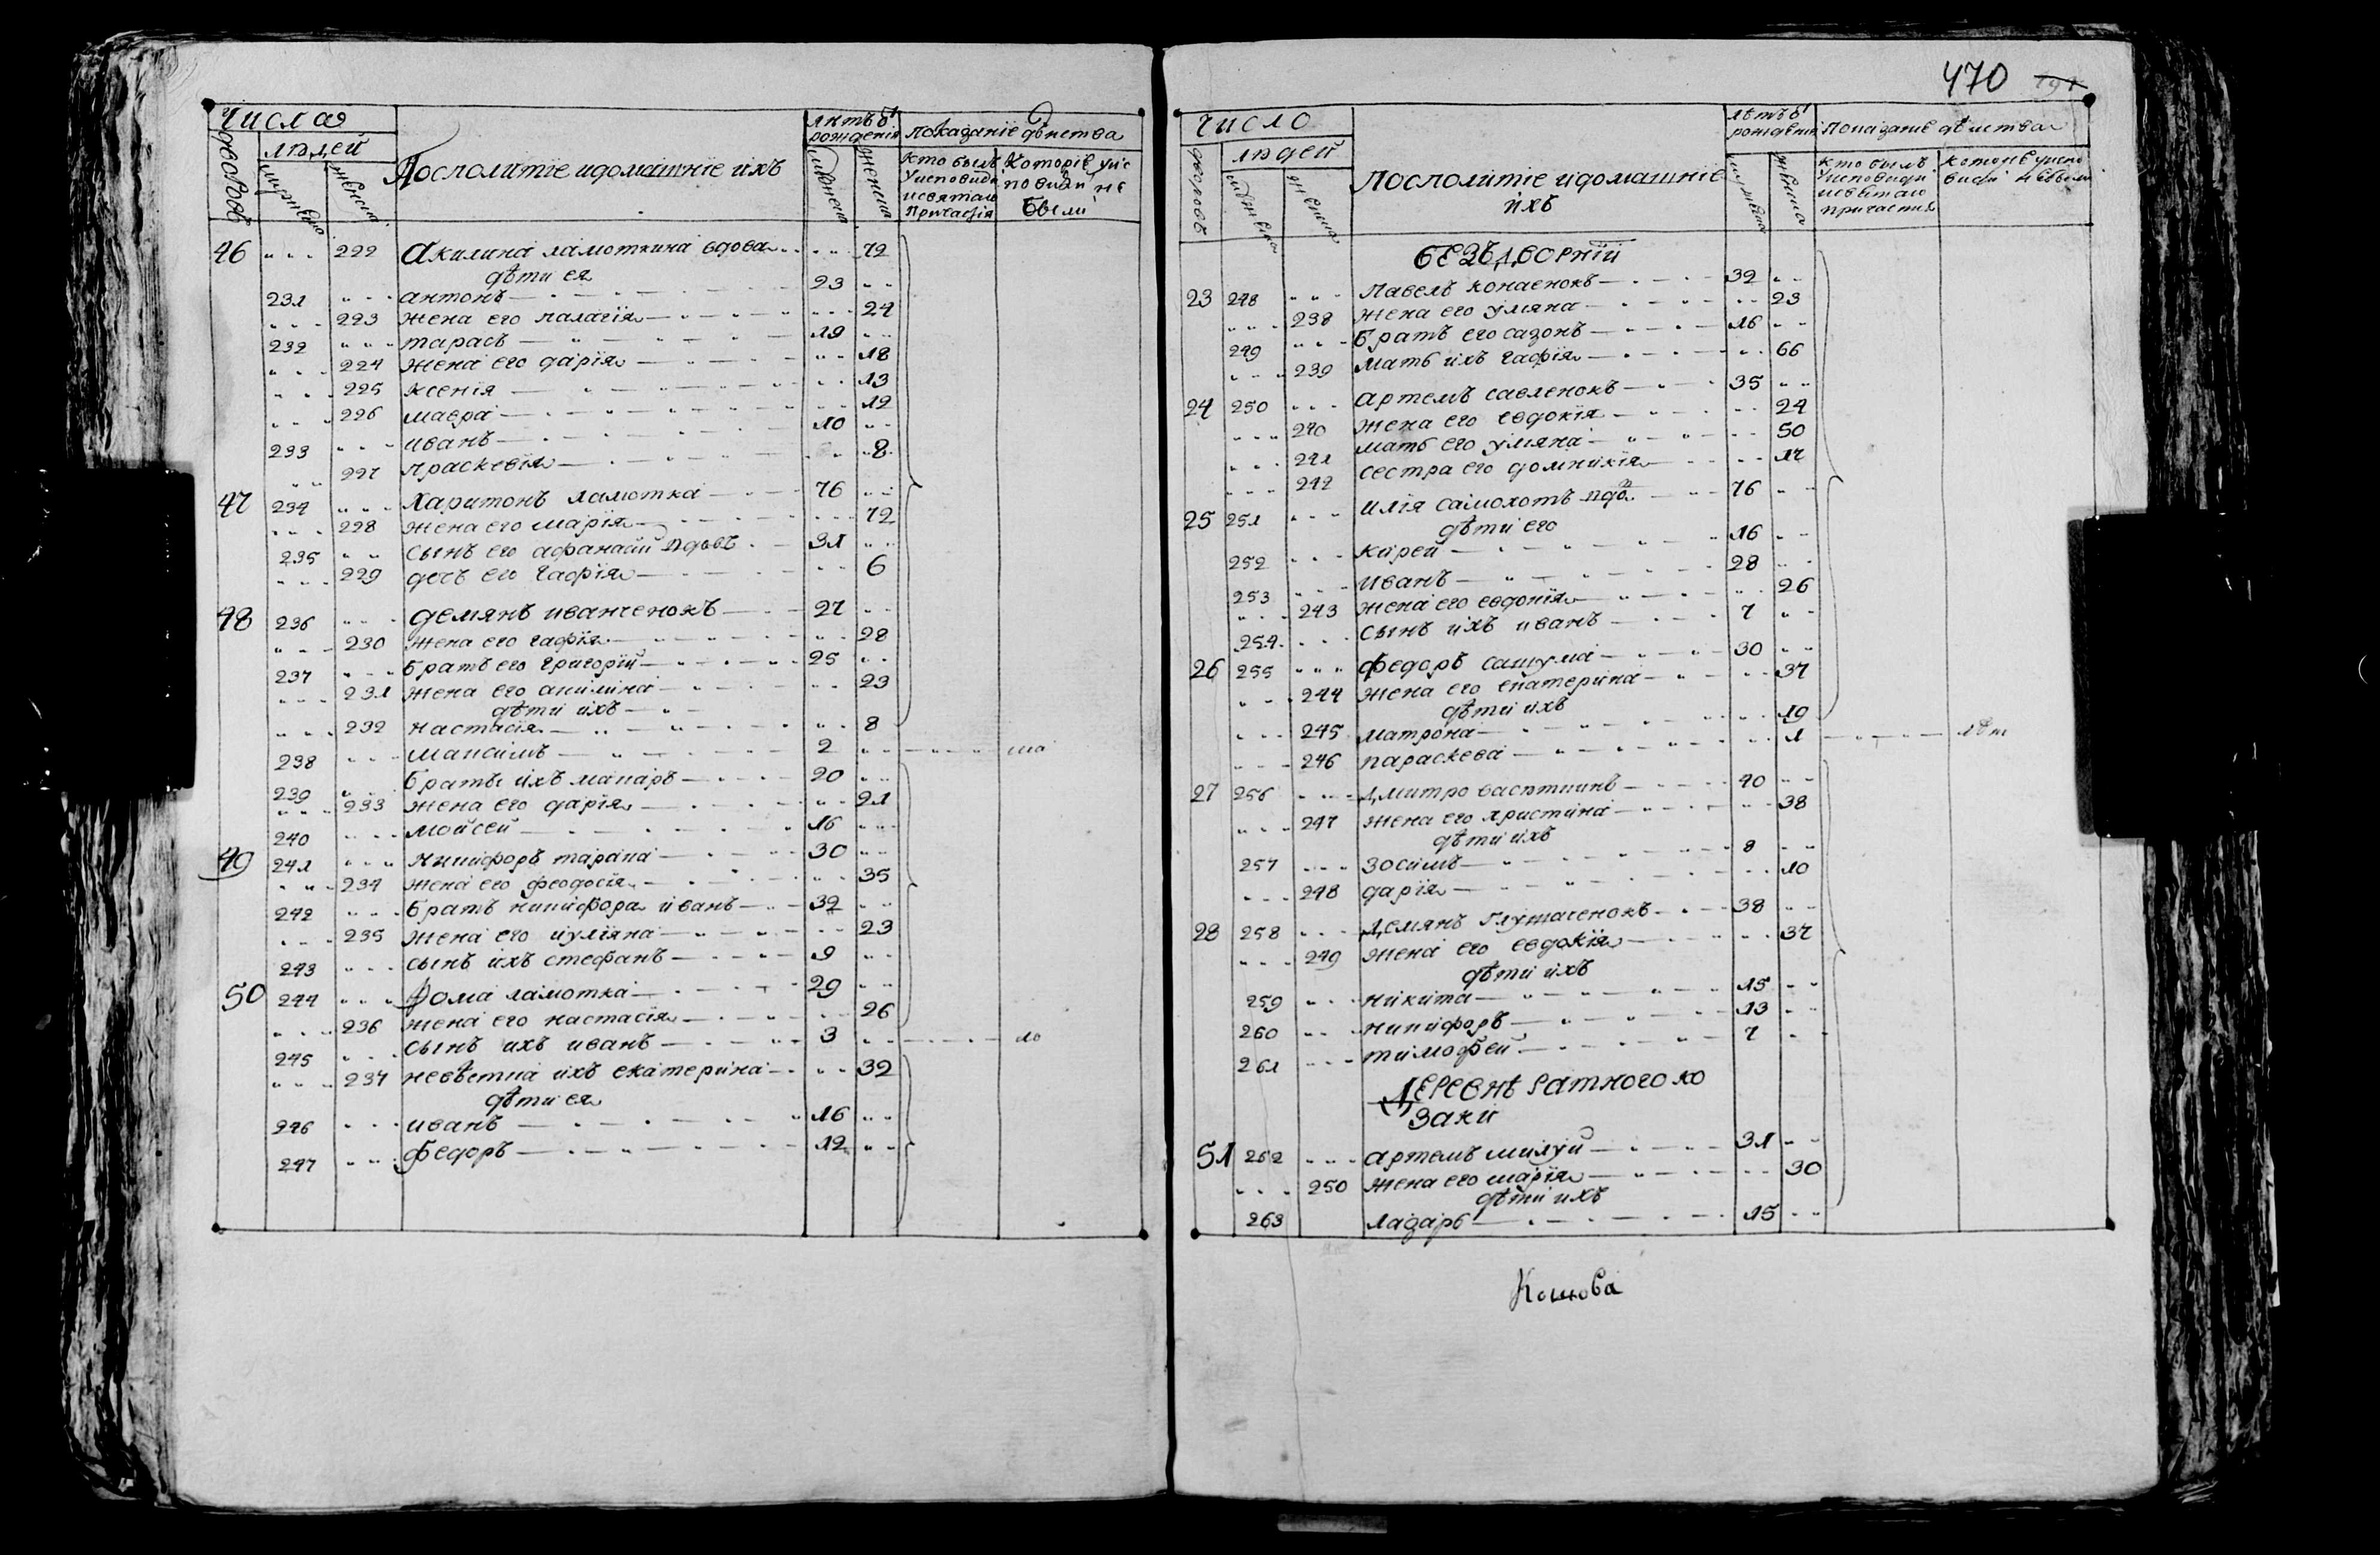 Числа
людей
дворовъ
мужеска
женска
Посполитіе идомашніе ихъ
летъ ѿ рожденія
мужеска
женска
показаніе действа
Кто былъ у исповѣди и святаго причастія
Которіе у исповѣди не были
46 222 Акилина ламоткина вдова 72
дѣти ея
231 антонъ 23
223 жена его палагія 24
232 тарасъ 19
224 жена его дарія 18
225 ксенія 13
226 мавра 12
233 иванъ 10
227 праскевія 8
47 234 Харитонъ ламотка 76
228 жена его марія 72
235 сынъ его афанасий вдовъ 31
229 дочь его гафія 6
48 236 демянъ иванченокъ 27
230 жена его гафія 28
237 братъ его григорій 25
231 жена его акилина 23
дѣти ихъ
232 настасія 8
238 максимъ 2
239 братъ ихъ макаръ 20
233 жена его дарія 21
240 мойсей 16
49 241 никифоръ тарана 30
234 жена его феодосія 35
242 братъ никифора иванъ 32
235 жена его иуліяна 23
243 сынъ ихъ стефанъ 9
50 244 Фома ламотка 29
236 жена его настасія 26
245 сынъ ихъ иванъ 3
237 невѣстка ихъ екатерина 32
дѣти ея
246 иванъ 16
247 федоръ 12
470
число
людей
дворовъ
мужеска
женска
Посполитіе идомашніе ихъ
летъ ѿ рожденія
мужеска
женска
Показаніе действа
Кто былъ у исповѣди и святаго причастия
Которіе у исповѣди не были
БЕЗЪДВОРНІИ
23 248 Павелъ конаенокъ 32
238 жена его уляна 23
249 братъ его сазонъ 16
239 мать ихъ гафія 66
24 250 артемъ савленокъ 35
240 жена его евдокія 24
241 мать его уляна 50
242 сестра его домникія 17
25 251 илія самохотъ 76
дѣти его
252 карей 16
253 иванъ 28
243 жена его евдокія 26
254 сынъ ихъ иванъ 7
26 255 федоръ сашума 30
244 жена его екатерина 37
дѣти ихъ
245 матрона 19
246 параскева 1
27 256 дмитро 40
247 жена его христина 38
дѣти ихъ
257 зосимъ 8
248 дарія 10
28 258 демянъ глушаенокъ 38
249 жена его евдокія 37
дѣти ихъ
259 никита 15
260 никифоръ 13
261 тимофей 7
ДЕРЕВНѢ РАТНОГО КО
ЗАКИ
51 262 артемъ милуй 31
250 жена его марія 30
дѣти ихъ
263 лазарь 15
Кошова